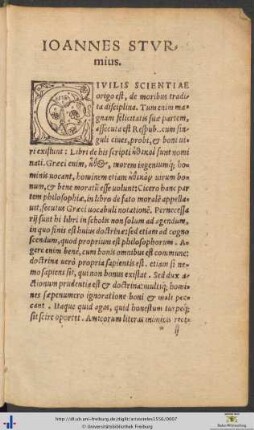 IOANNES STVR-
mius.
CIVILIS SCIENTIAE
origo est, de moribus tradi-
ta disciplina. Tum enim ma-
gnam felicitatis suæ partem,
assecuta est Respub. cum sin-
guli ciues, probi, & boni ui-
ri existunt: Libri de his scripti ἠθικοὶ sunt nomi
nati. Græci enim, ἦθος, morem ingeniumq́; ho-
minis uocant, hominem etiam ἠθικὸν uirum bo-
num, & bene moratū esse uolunt: Cicero hanc par
tem philosophiæ, in libro de fato moralē appella-
uit, secutus Græci uocabuli notationē. Pernecessa-
rij sunt hi libri in scholis non solum ad agendum,
in quo finis est huius doctrinæ: sed etiam ad cogno
scendum, quod proprium est philosophorum. A-
gere enim benè, cum bonis omnibus est commune:
doctrina uerò propria sapientis est. etiam si ne-
mo sapiens sit, qui non bonus existat. Sed dux a-
ctionum prudentia est & doctrina: multiq́; homi-
nes sæpenumero ignoratione boni & mali pec-
cant. Itaque quid agas, quid honestum turpeq́;
sit scire oportet. Antiquorum literæ monitis recte
ij
http://dl.ub.uni-freiburg.de/diglit/aristoteles1556/0007
© Universitätsbibliothek Freiburg